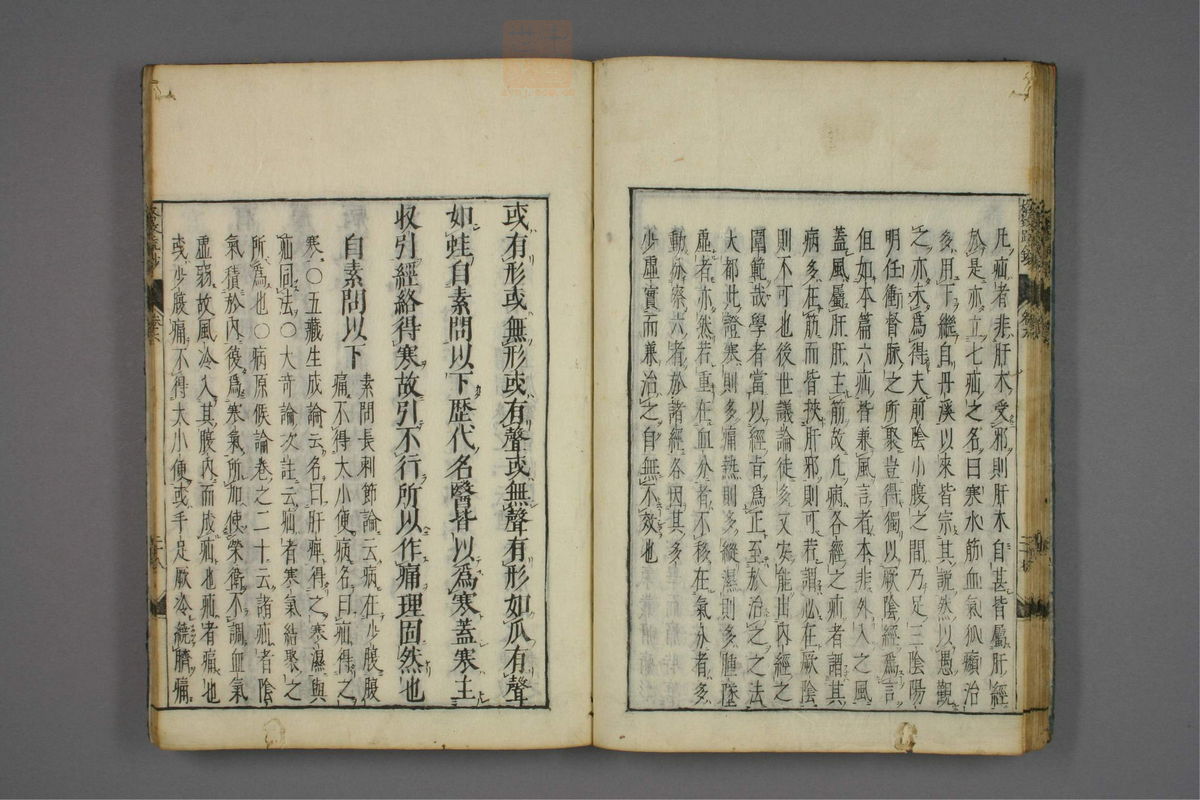 凡疝者非肝木受邪則肝木自甚皆屬肝經
於是亦立七疝之名曰寒水筋血氣狐㿗治
多用下繼自丹溪以來皆宗其說然以愚觀
之亦未爲得夫前陰小腹之間乃足三陰陽
明任衝督脈之所聚豈得獨以厥陰經爲言
但如本篇六疝皆兼風言者本非外入之風
蓋風屬肝肝主筋故凡病各經之疝者謂其
病多在筋而皆挾肝邪則可若謂必在厥陰
則不可也後世議論徒多又安能出內經之
圍範哉學者當以經旨爲正至於治之之法
大都此證寒則多痛熱則多縱濕則多腫墜
虛者亦然若重在血分者不移在氣分者多
動分察六者於諸經各因其多
少虛實而兼治之自無不效也
或有形或無形或有聲或無聲有形如瓜有聲
如蛙自素問以下歷代名醫皆以爲寒蓋寒主
收引經絡得寒故引不行所以作痛理固然也
自素問以下
素問長刺節論云病在少腹腹
痛不得大小便病名曰疝得之
寒○五藏生成論云名曰肝痺得之寒濕與
疝同法○大奇論次註云疝者寒氣結聚之
所爲也○病原候論卷之二十云諸疝者陰
氣積於內後爲寒氣所加使榮衛不調血氣
虛弱故風冷入其腹內而成疝也疝者痛也
或少腹痛不得大小便或手足厥冷繞臍痛